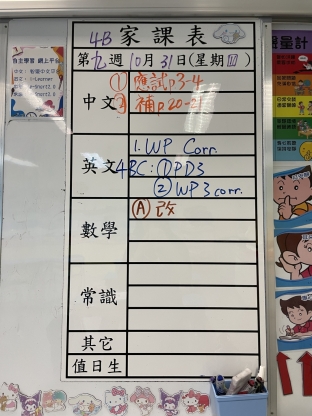 4B 家課表
第九週10月31日(星期四)
中文 ① 應試p3-4
② 補p20-21
英文 1. WP Corr.
4BC: ① PD3
② WP3 corr.
數學 Ⓐ 改
常識
其它
值日生
自主學習 網上平台